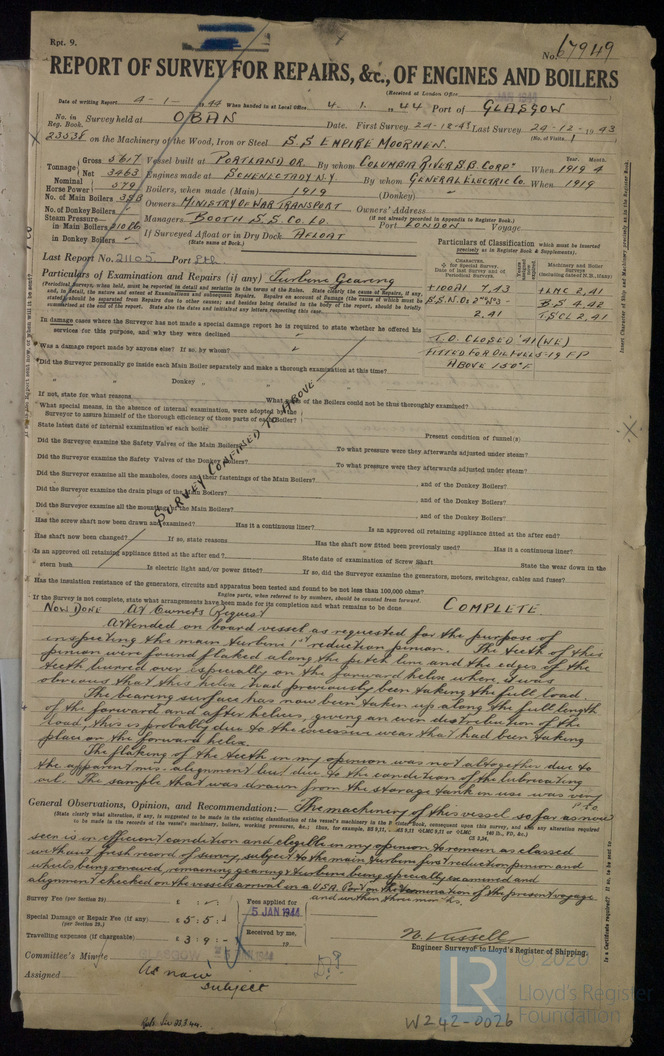 Rpt. 9.
No. 67949
REPORT OF SURVEY FOR REPAIRS, &c., OF ENGINES AND BOILERS
(Received at London Office JAN 1944
Date of writing Report 4-1- 1944 When handed in at Local Office 4. 1. 1944 Port of GLASGOW
No. in Reg. Book. Survey held at OBAN Date. First Survey 24-12-43 Last Survey 24-12-1943
(No. of Visits 1)
23538 on the Machinery of the Wood, Iron or Steel S.S EMPIRE MOORHEN.
Tonnage Gross 5617 Vessel built at PORTLAND OR. By whom COLUMBIA RIVER S.B. CORPN When 1919 4
Net 3463 Engines made at SCHENECTADY N.Y By whom GENERAL ELECTRIC Co. When 1919
Nominal Horse Power 579 Boilers, when made (Main) 1919 (Donkey)
No. of Main Boilers 3SB Owners MINISTRY OF WAR TRANSPORT Owners' Address
(if not already recorded in Appendix to Register Book.)
No. of Donkey Boilers Managers BOOTH S.S. Co. LD. Port LONDON Voyage
Steam Pressure in Main Boilers 210 lbs If Surveyed Afloat or in Dry Dock AFLOAT
in Donkey Boilers (State name of Dock.)
Last Report No. 21105 Port Phl.
Particulars of Classification (which must be inserted precisely as in Register Book & Supplements).
Particulars of Examination and Repairs (if any) Turbine Gearing
+100A1 7,43 +LMC 2,41
S.S.No. 2nd No3 - B S 4.42
2,41 TSCL 2,41
T.D. CLOSED '41 (WE)
FITTED FOR OIL FUEL 5-19 F P
ABOVE 150°F
In damage cases where the Surveyor has not made a special damage report he is required to state whether he offered his services for this purpose, and why they were declined
Was a damage report made by anyone else? If so, by whom?
Did the Surveyor personally go inside each Main Boiler separately and make a thorough examination at this time?
" " Donkey " "
If not, state for what reasons What parts of the Boilers could not be thus thoroughly examined?
What special means, in the absence of internal examination, were adopted by the Surveyor to assure himself of the thorough efficiency of those parts of each Boiler?
State latest date of internal examination of each boiler Present condition of funnel(s)
Did the Surveyor examine the Safety Valves of the Main Boilers? To what pressure were they afterwards adjusted under steam?
Did the Surveyor examine the Safety Valves of the Donkey Boilers? To what pressure were they afterwards adjusted under steam?
Did the Surveyor examine all the manholes, doors and their fastenings of the Main Boilers? , and of the Donkey Boilers?
Did the Surveyor examine the drain plugs of the Main Boilers? , and of the Donkey Boilers?
Did the Surveyor examine all the mountings of the Main Boilers? , and of the Donkey Boilers?
SURVEY CONFINED TO ABOVE
Has the screw shaft now been drawn and examined? Has it a continuous liner? Is an approved oil retaining appliance fitted at the after end?
Has shaft now been changed? If so, state reasons Has the shaft now fitted been previously used? Has it a continuous liner?
Is an approved oil retaining appliance fitted at the after end? State date of examination of Screw Shaft State the wear down in the
stern bush Is electric light and/or power fitted? If so, did the Surveyor examine the generators, motors, switchgear, cables and fuses?
Has the insulation resistance of the generators, circuits and apparatus been tested and found to be not less than 100,000 ohms?
Engine parts, when referred to by numbers, should be counted from forward.
If the Survey is not complete, state what arrangements have been made for its completion and what remains to be done COMPLETE
NOW DONE At Owners Request
Attended on board vessel as requested for the purpose of
inspecting the main turbine 1st reduction pinion. The teeth of this
pinion were found flaked along the pitch line and the edges of the
teeth burred over especially on the forward helix where it was
obvious that this helix had previously been taking the full load.
The bearing surface has now been taken up along the full length
of the forward and after helices, giving an even distribution of the
load, this is probably due to the excessive wear that had been taking
place on the forward helix.
The flaking of the teeth in my opinion was not altogether due to
the apparent mis-alignment but due to the condition of the lubricating
oil. The sample that was drawn from the storage tank in use was very
P.T.O.
General Observations, Opinion, and Recommendation:- The machinery of this vessel so far as now
seen is in efficient condition and eligible in my opinion to remain as classed
without fresh record of survey, subject to the main turbine first reduction pinion and
wheels being renewed, remaining gearing & turbine being specially examined and
alignment checked on the vessels arrival in a U.S.A. Port on the termination of the present voyage
and within three months.
Survey Fee (per Section 29.) £ : :
Special Damage or Repair Fee (if any) (per Section 29.) £ 5:5:
Travelling expenses (if chargeable) £ 3:9:-
Fees applied for 5 JAN 1944
Received by me,
N Russell
Engineer Surveyor to Lloyd's Register of Shipping.
Committee's Minute GLASGOW 1944
Assigned As now
subject
© 2020
LR
Lloyd's Register
Foundation
W242-0026